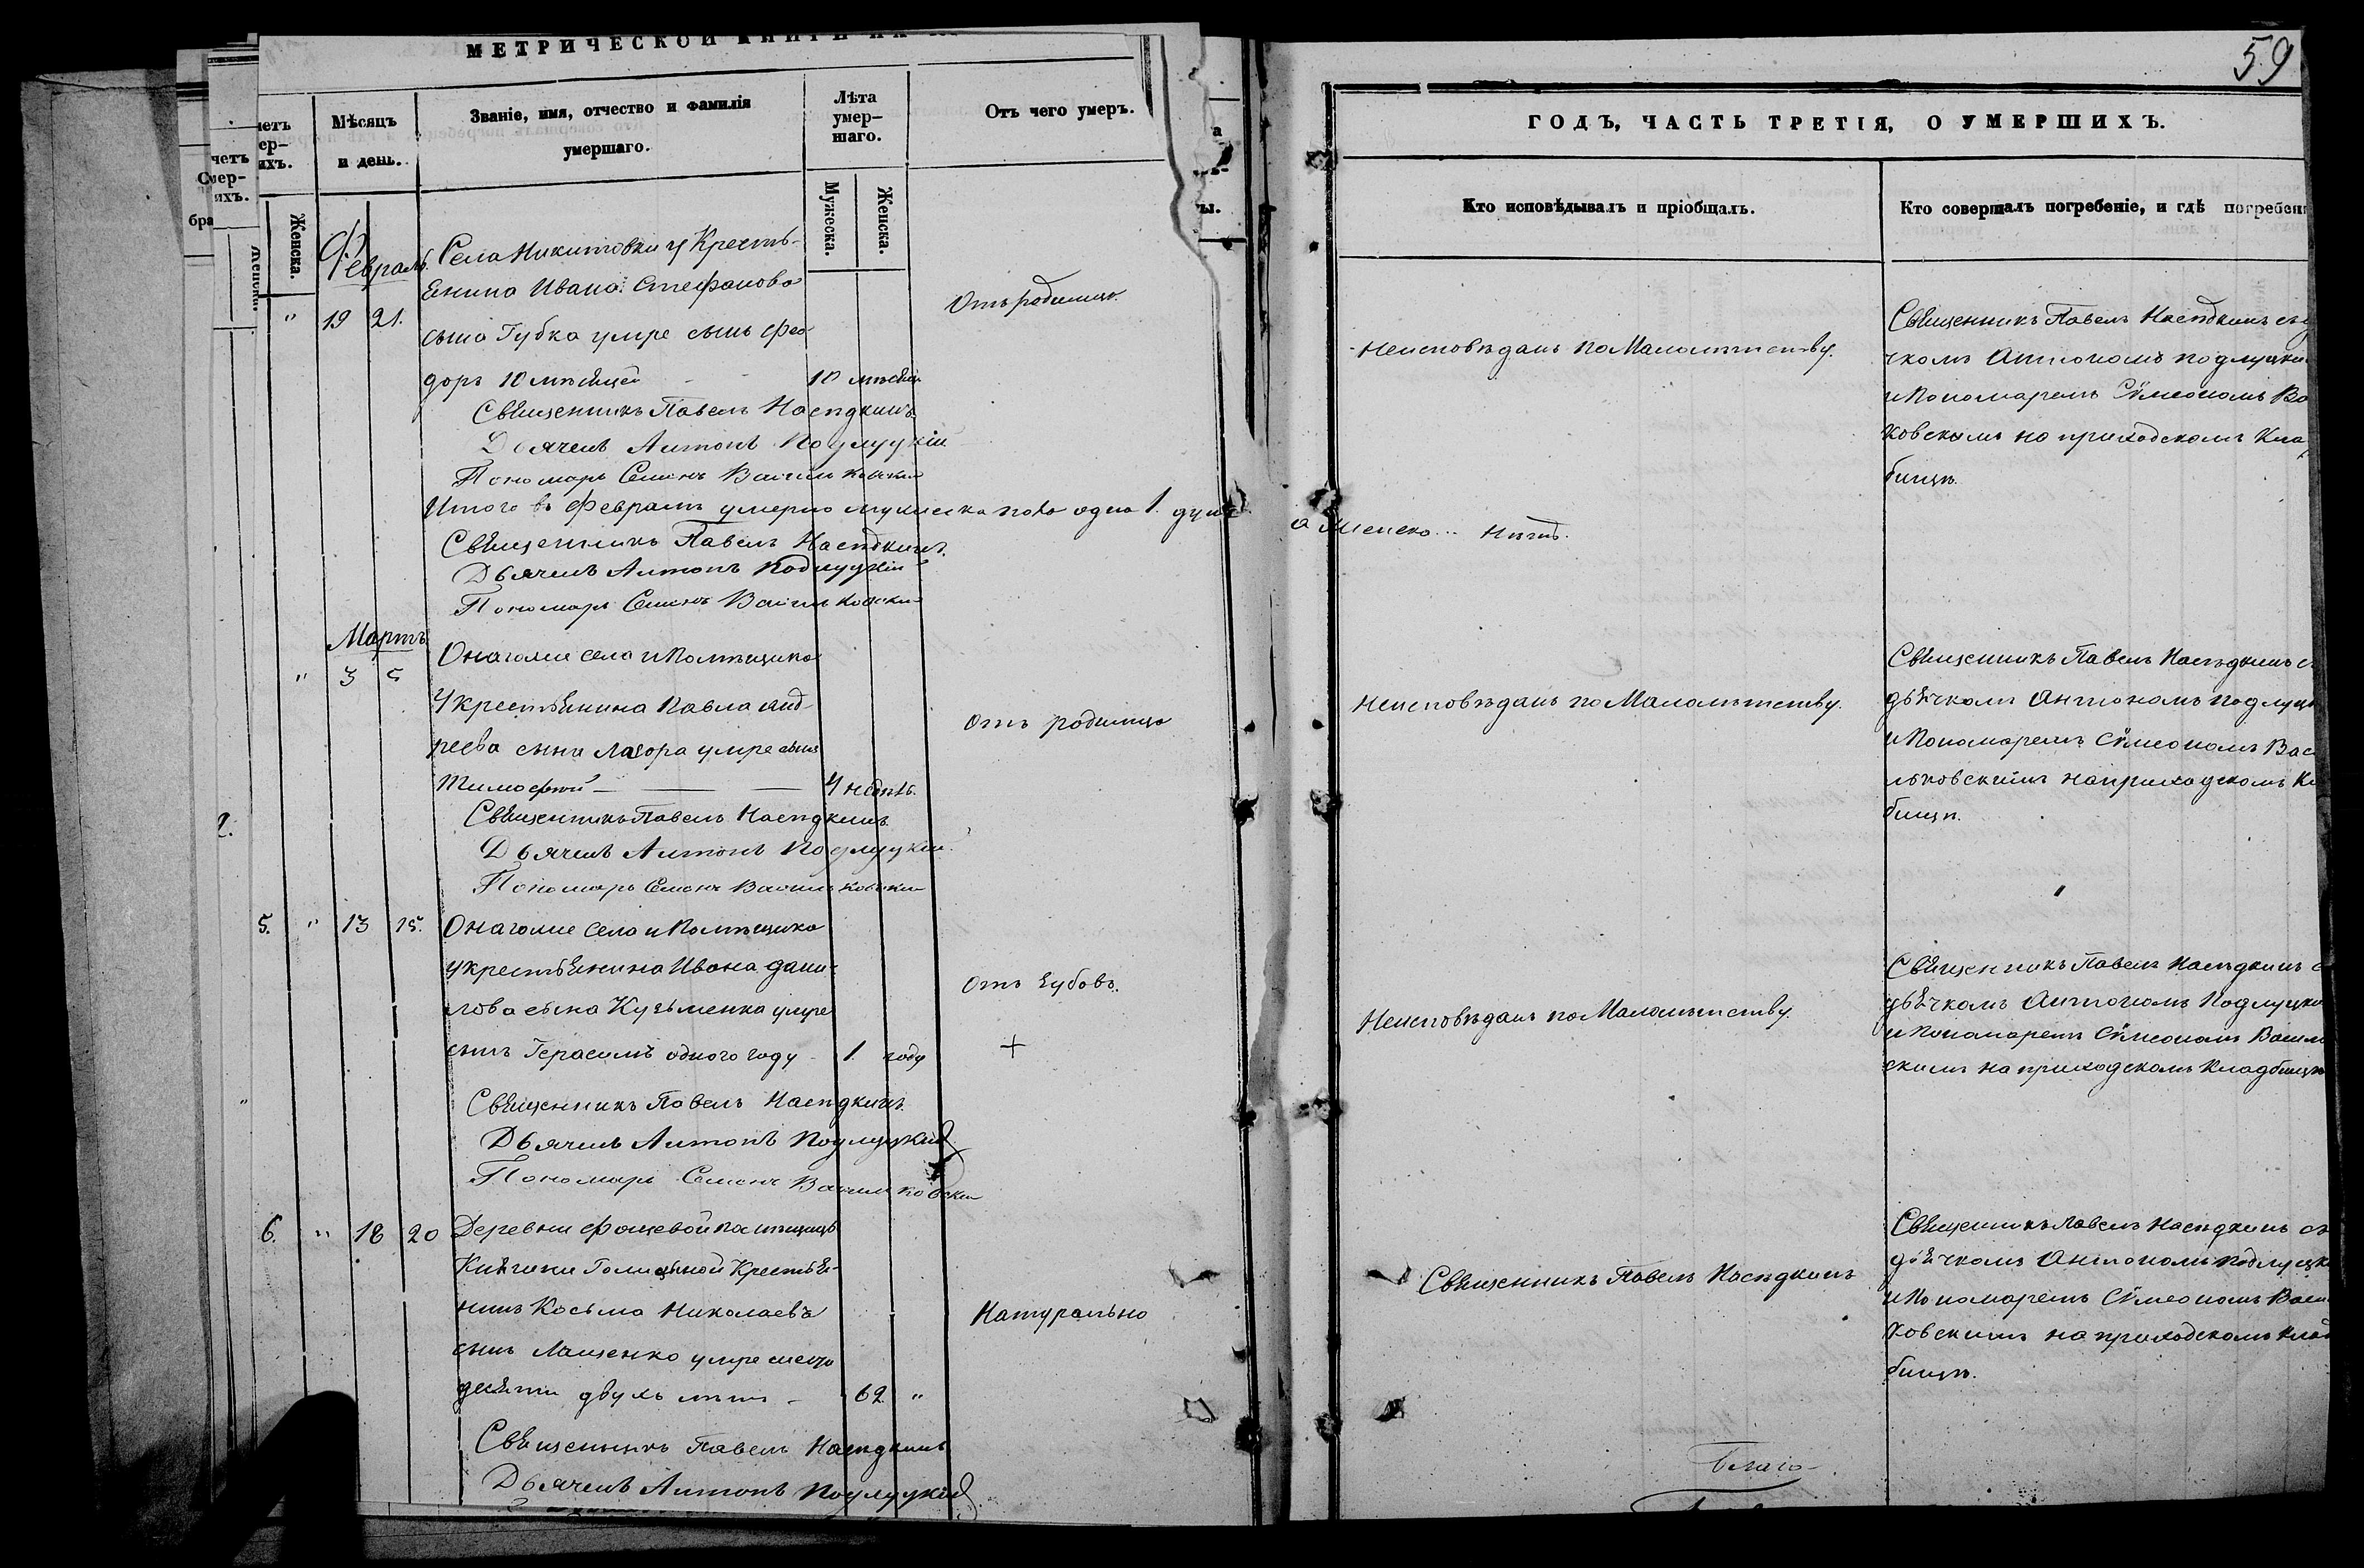 МЕТРИЧЕСКОЙ КНИГИ НА
Мѣсяцъ и день.
Званіе, имя, отчество и фамилія умершаго.
Лѣта умер-
шаго.
Мужеска.
Женска.
Отъ чего умеръ.
Женска.
Февраль
" 19 21.
Села Никитовки у Кресть-
янина Ивана Стефанова
сына Губка умре сынъ Фео
доръ 10 мѣсяцей - - 10 мѣсяц
Отъ родимца.
Священникъ Павелъ Насѣдкинъ
Дьячекъ Антонъ Подлуцкій
Пономарь Семенъ Васильковскій
Итого въ Февралѣ умерло мужеска пола одна 1. душа
Священникъ Павелъ Насѣдкинъ.
Дьячекъ Антонъ Подлуцкій
Пономарь Семенъ Васильковскій
Мартъ
" 3 5
Оначаліе села и Помѣщика
у крестьянина Павла Анд-
реева сына Лазора умре сынъ
Тимофей — — — 4 недѣль.
отъ родимца
Священникъ Павелъ Насѣдкинъ.
Дьячекъ Антонъ Подлуцкій.
Пономарь Семенъ Васильковскій
2.
5. " 13 15.
Оначаліе села и Помѣщика
у крестьянина Ивана Дани-
лова сына Кузьменка умре
сынъ Герасимъ одного году - 1. году
отъ зубовъ.
+
Священникъ Павелъ Насѣдкинъ.
Дьячекъ Антонъ Подлуцкій
Пономарь Семенъ Васильковскій
6. " 18 20
Деревни Фощевой помѣщицы
Княгини Голицыной Крестья-
нинъ Косьма Николаевъ
сынъ Лященко умре шести
десяти двухъ лѣтъ - 62. "
Натурально
Священникъ Павелъ Насѣдкинъ
Дьячекъ Антонъ Подлуцкій
59
ГОДЪ, ЧАСТЬ ТРЕТІЯ, О УМЕРШИХЪ.
Кто исповѣдывалъ и пріобщалъ.
Кто совершалъ погребеніе, и гдѣ погребен
Неисповѣданъ по Малолѣтству.
Священникъ Павелъ Насѣдкинъ съ д
чкомъ Антономъ Подлуцки
и Пономаремъ Сѵмеономъ Ва
ковскимъ на приходскомъ Кла
бищѣ.
а Женска... Нѣтъ.
Неисповѣданъ по Малолѣтству.
Священникъ Павелъ Насѣдкинъ с
дьячкомъ Антономъ Подлуц
и Пономаремъ Сѵмеономъ Вас
льковскимъ на приходскомъ Кл
бищѣ.
Неисповѣданъ по Малолѣтству.
Священникъ Павелъ Насѣдкинъ с
дьячкомъ Антономъ Подлуцк
и Пономаремъ Сѵмеономъ Васил
скимъ на приходскомъ Кладбищѣ
Священникъ Павелъ Насѣдкинъ
Священникъ Павелъ Насѣдкинъ съ
дьячкомъ Антономъ Подлуцк
и Пономаремъ Сѵмеономъ Васи
ковскимъ на приходскомъ клад
бищѣ.
Благо-